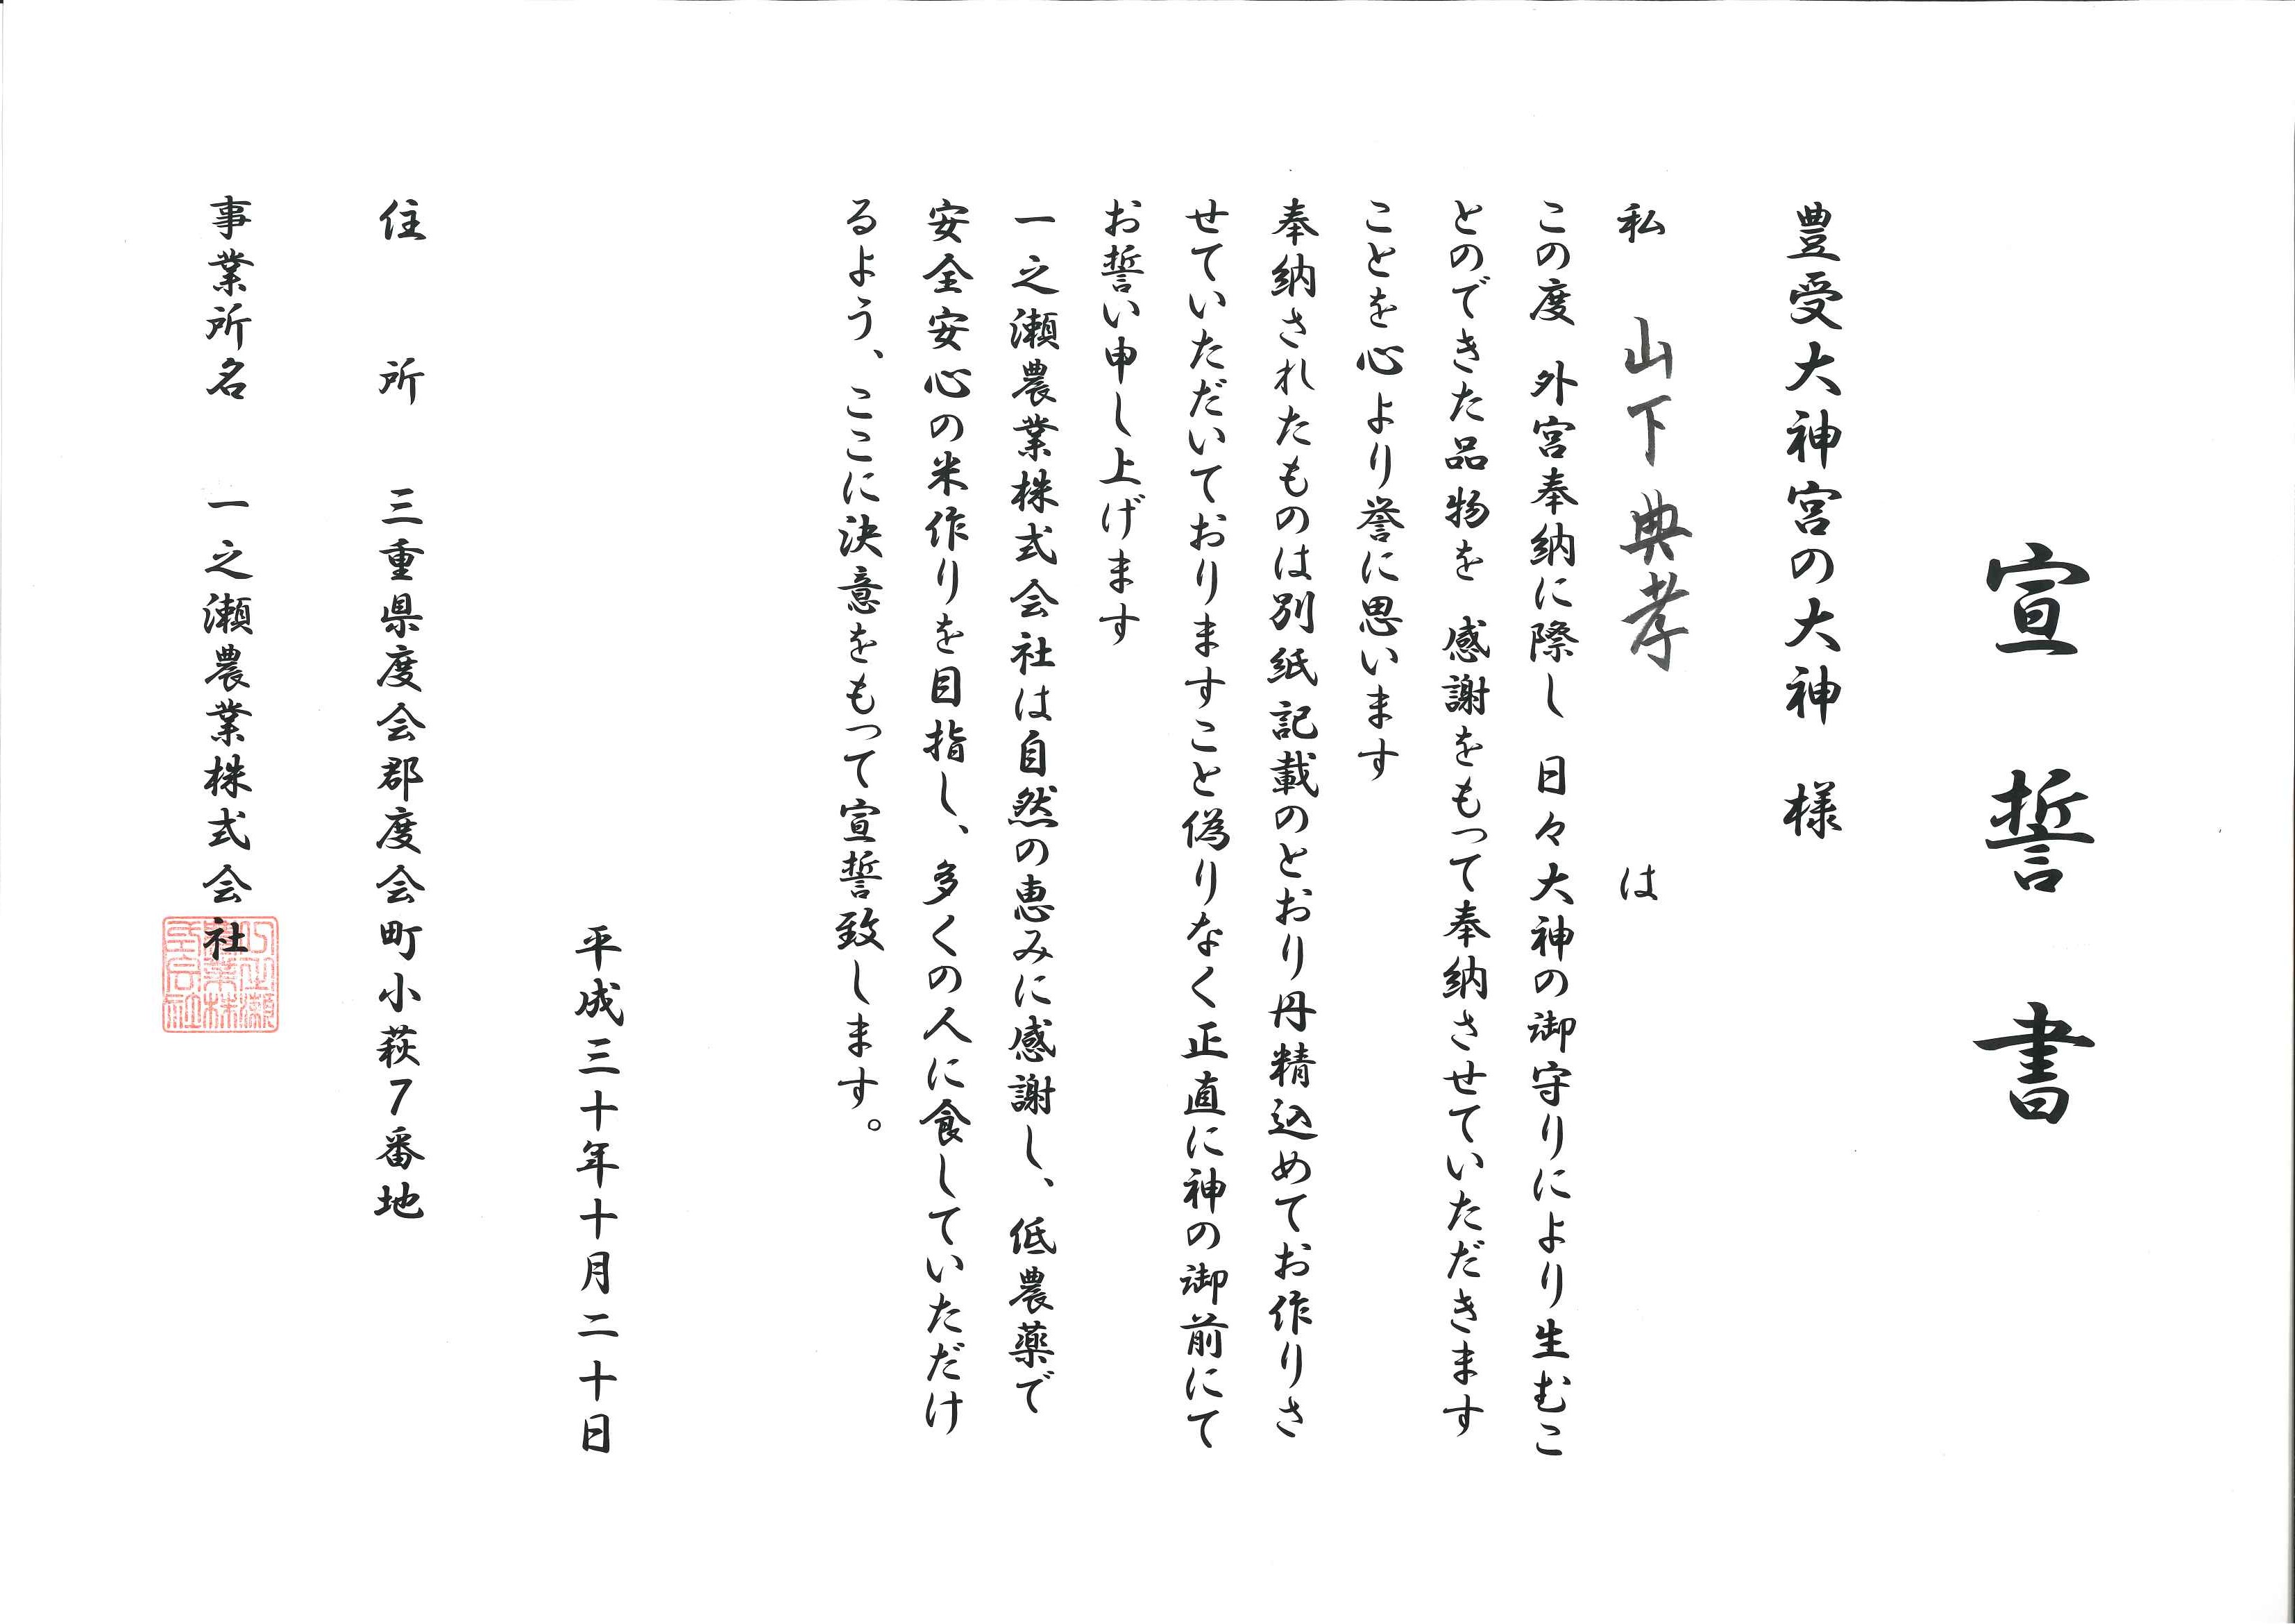 宣誓書
豊受大神宮の大神　様
私　山下典孝　は
この度　外宮奉納に際し　日々大神の御守りにより生むこ
とのできた品物を　感謝をもって奉納させていただきます
ことを心より誉に思います
奉納されたものは別紙記載のとおり丹精込めてお作りさ
せていただいておりますこと偽りなく正直に神の御前にて
お誓い申し上げます
一之瀬農業株式会社は自然の恵みに感謝し、低農薬で
安全安心の米作りを目指し、多くの人に食していただけ
るよう、ここに決意をもって宣誓致します。
平成三十年十月二十日
住　所　三重県度会郡度会町小萩7番地
事業所名　一之瀬農業株式会社
一之瀬農業株式会社